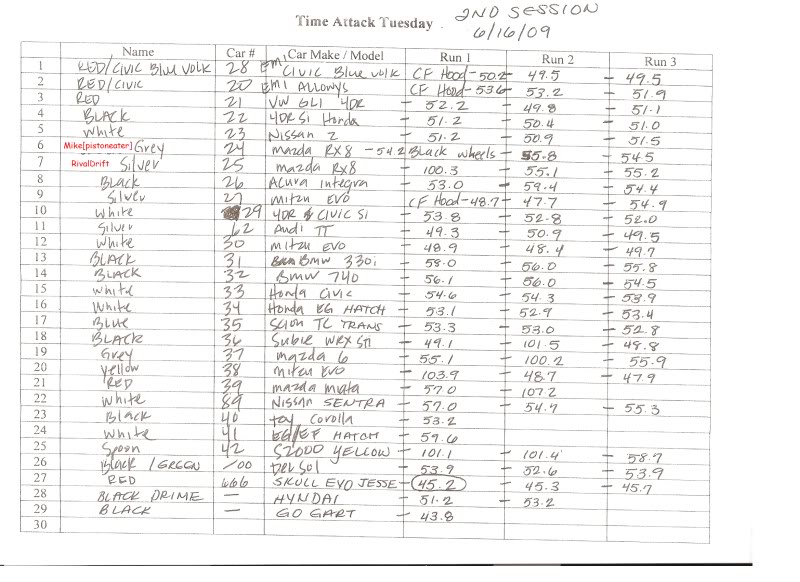 Time Attack Tuesday
2ND SESSION
6/16/09
Name Car # Car Make / Model Run 1 Run 2 Run 3
1 RED/CIVIC BLUE VOLK 28 EMI CIVIC Blue volk CF Hood - 50.2 - 49.5 - 49.5
2 RED/CIVIC 20 EMI ALLOWYS CF Hood - 53.6 - 53.2 - 51.9
3 RED 21 VW GLI 4DR - 52.2 - 49.8 - 51.1
4 BLACK 22 4DR Si Honda - 51.2 - 50.4 - 51.0
5 White 23 Nissan Z - 51.2 - 50.9 - 51.5
6 Mike[pistoneater] Grey 24 mazda RX8 - 54.2 Black wheels - 55.8 - 54.5
7 RivalDrift Silver 25 mazda RX8 - 100.3 - 55.1 - 55.2
8 Black 26 Acura integra - 53.0 - 59.4 - 54.4
9 Silver 27 mitzu EVO CF Hood - 48.7 - 47.7 - 54.9
10 White 29 4DR CIVIC Si - 53.8 - 52.8 - 52.0
11 Silver 62 Audi TT - 49.3 - 50.9 - 49.5
12 White 30 mitzu EVO - 48.9 - 48.4 - 49.7
13 BLACK 31 Bmw 330i - 58.0 - 56.0 - 55.8
14 BLACK 32 Bmw 740 - 56.1 - 56.0 - 54.5
15 White 33 Honda Civic - 54.6 - 54.3 - 53.9
16 White 34 Honda EG HATCH - 53.1 - 52.9 - 53.4
17 Blue 35 Scion TC TRANS - 53.3 - 53.0 - 52.8
18 BLACK 36 Subie WRX STI - 49.1 - 101.5 - 48.8
19 Grey 37 mazda 6 - 55.1 - 100.2 - 55.9
20 yellow 38 mitzu EVO - 103.9 - 48.7 - 47.9
21 RED 39 mazda miata - 57.0 - 107.2
22 White 89 Nissan SENTRA - 57.0 - 54.7 - 55.3
23 Black 40 toy Corolla - 53.2
24 White 41 EG/EF HATCH - 59.6
25 Spoon 42 S2000 YELLOW - 101.1 - 101.4 - 58.7
26 Black / GREEN /00 Del Sol - 53.9 - 52.6 - 53.9
27 RED 666 SKULL EVO JESSE - 45.2 - 45.3 - 45.7
28 BLACK PRIME — HYNDAI - 51.2 - 53.2
29 BLACK — GO GART - 43.8
30